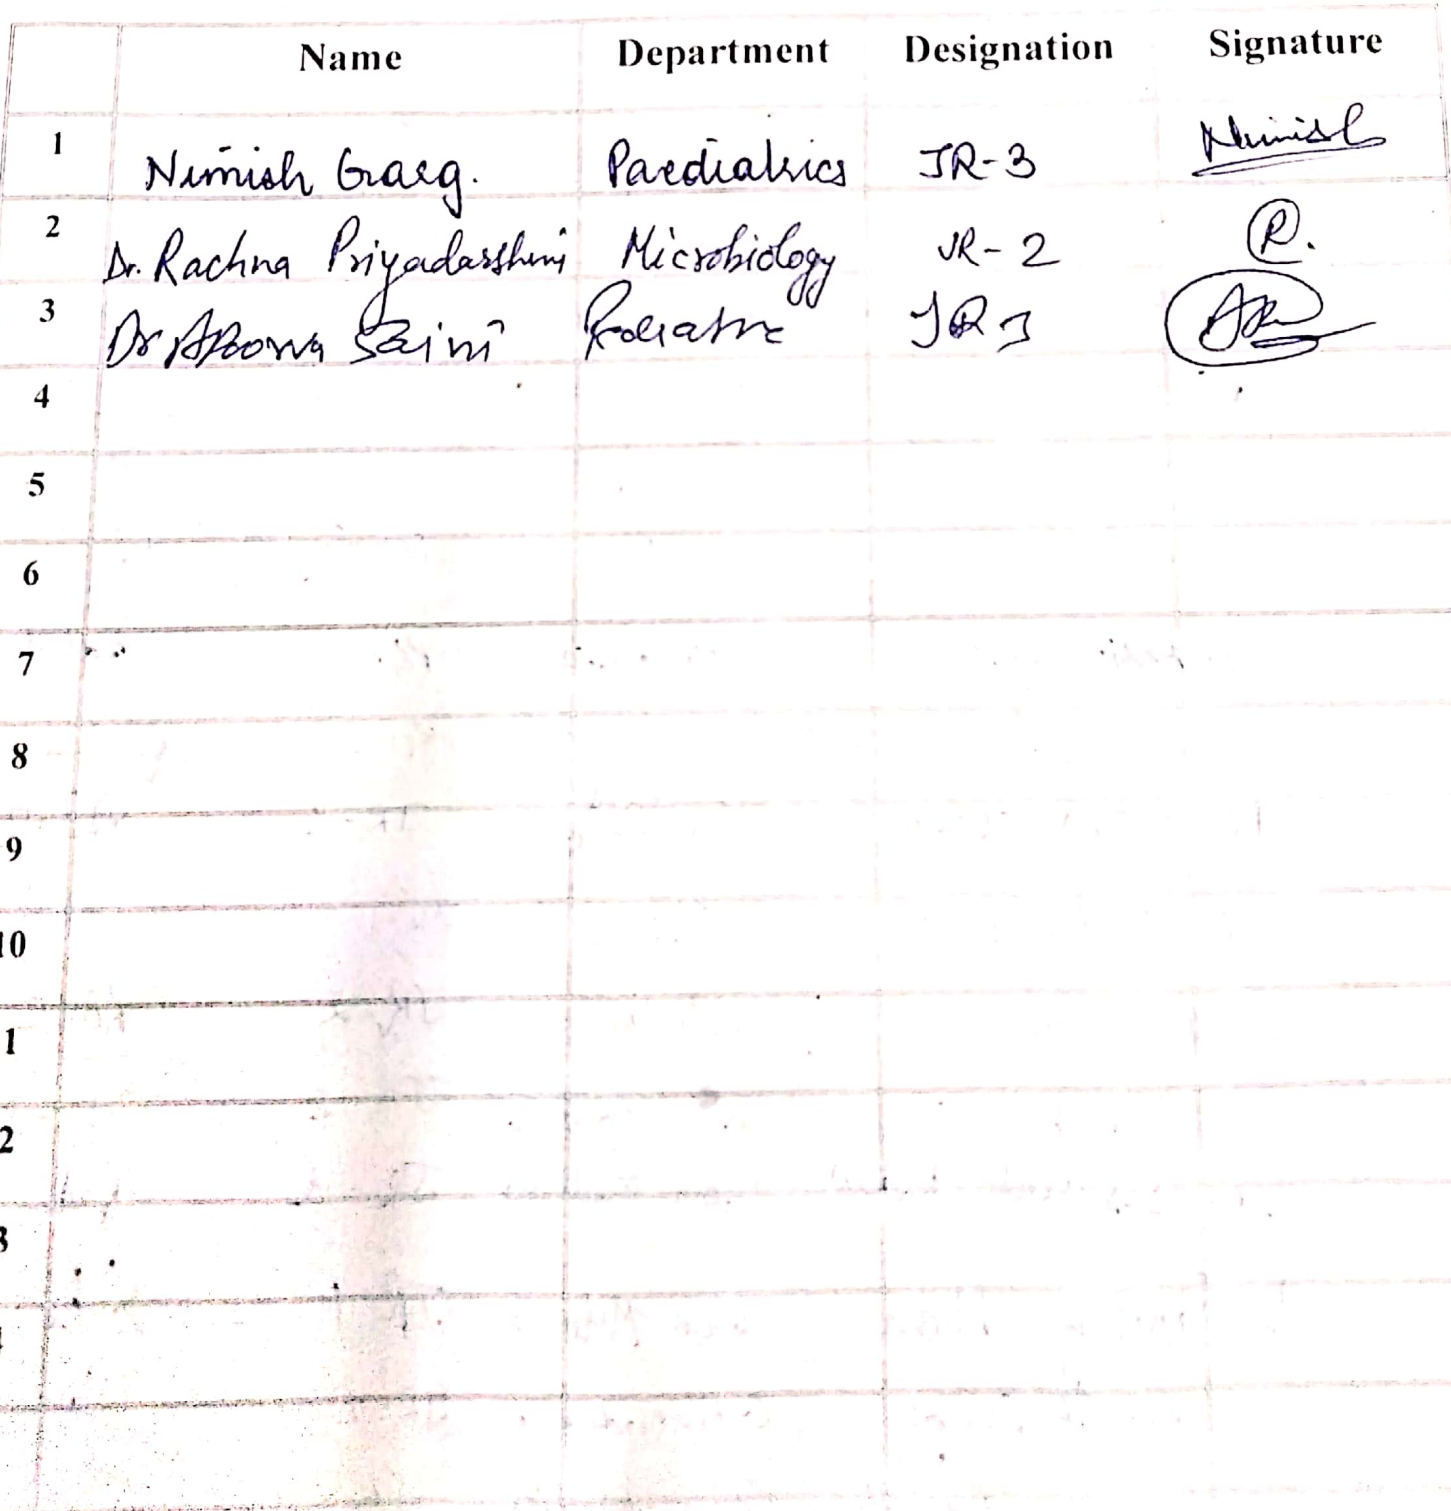 Name Department Designation Signature
1 Nimish Garg. Paediatrics JR-3 Nimish
2 Dr. Rachna Priyadarshini Microbiology JR-2 R.
3 Dr Apoorva Saini JR 3
4
5
6
7
8
9
10
1
2
3